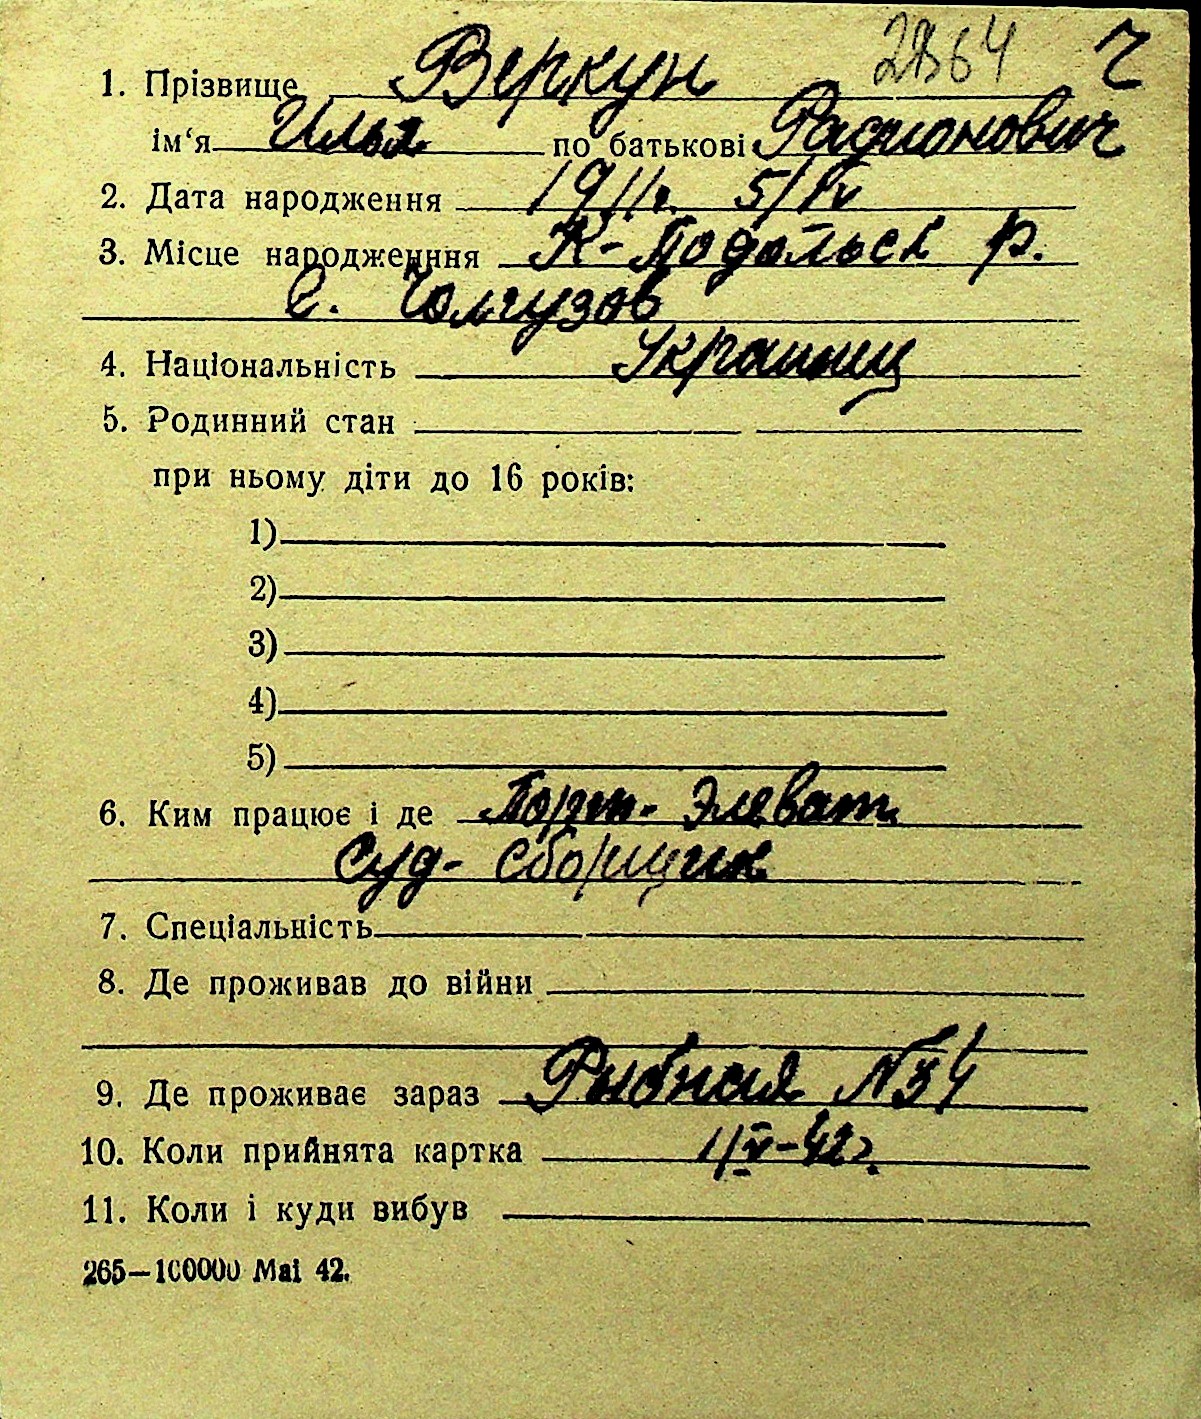 2864 Ч
1. Прізвище Веркун
ім‘я Илья по батькові Радионович
2. Дата народження 1911г. 5/IV
3. Місце народженння К-Подольск р.
с.
4. Національність Украинец
5. Родинний стан
при ньому діти до 16 років:
1)
2)
3)
4)
5)
6. Ким працює і де Порт- Элеват.
Суд- сборщик
7. Спеціальність
8. Де проживав до війни
9. Де проживає зараз Рыбная №34
10. Коли прийнята картка
11. Коли і куди вибув
265—100000 Маі 42.